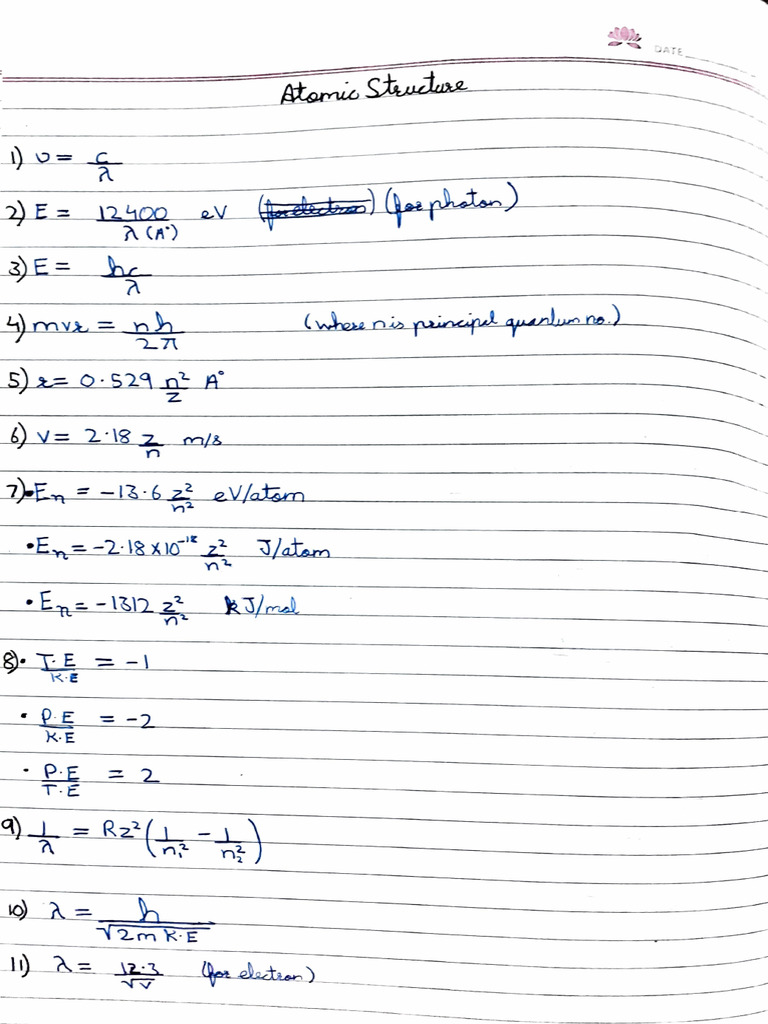 DATE
Atomic Structure
1) υ = c/λ
2) E = 12400/λ(A°) eV (for electron) (for photon)
3) E = hc/λ
4) mvr = nh/2π (where n is principal quantum no.)
5) r = 0.529 n²/z A°
6) v = 2.18 z/n m/s
7) • En = -13.6 z²/n² eV/atom
• En = -2.18×10⁻¹⁸ z²/n² J/atom
• En = -1312 z²/n² kJ/mol
8) • T.E/K.E = -1
• P.E/K.E = -2
• P.E/T.E = 2
9) 1/λ = Rz² (1/n₁² - 1/n₂²)
10) λ = h/√2m K.E
11) λ = 12.3/√V (for electron)